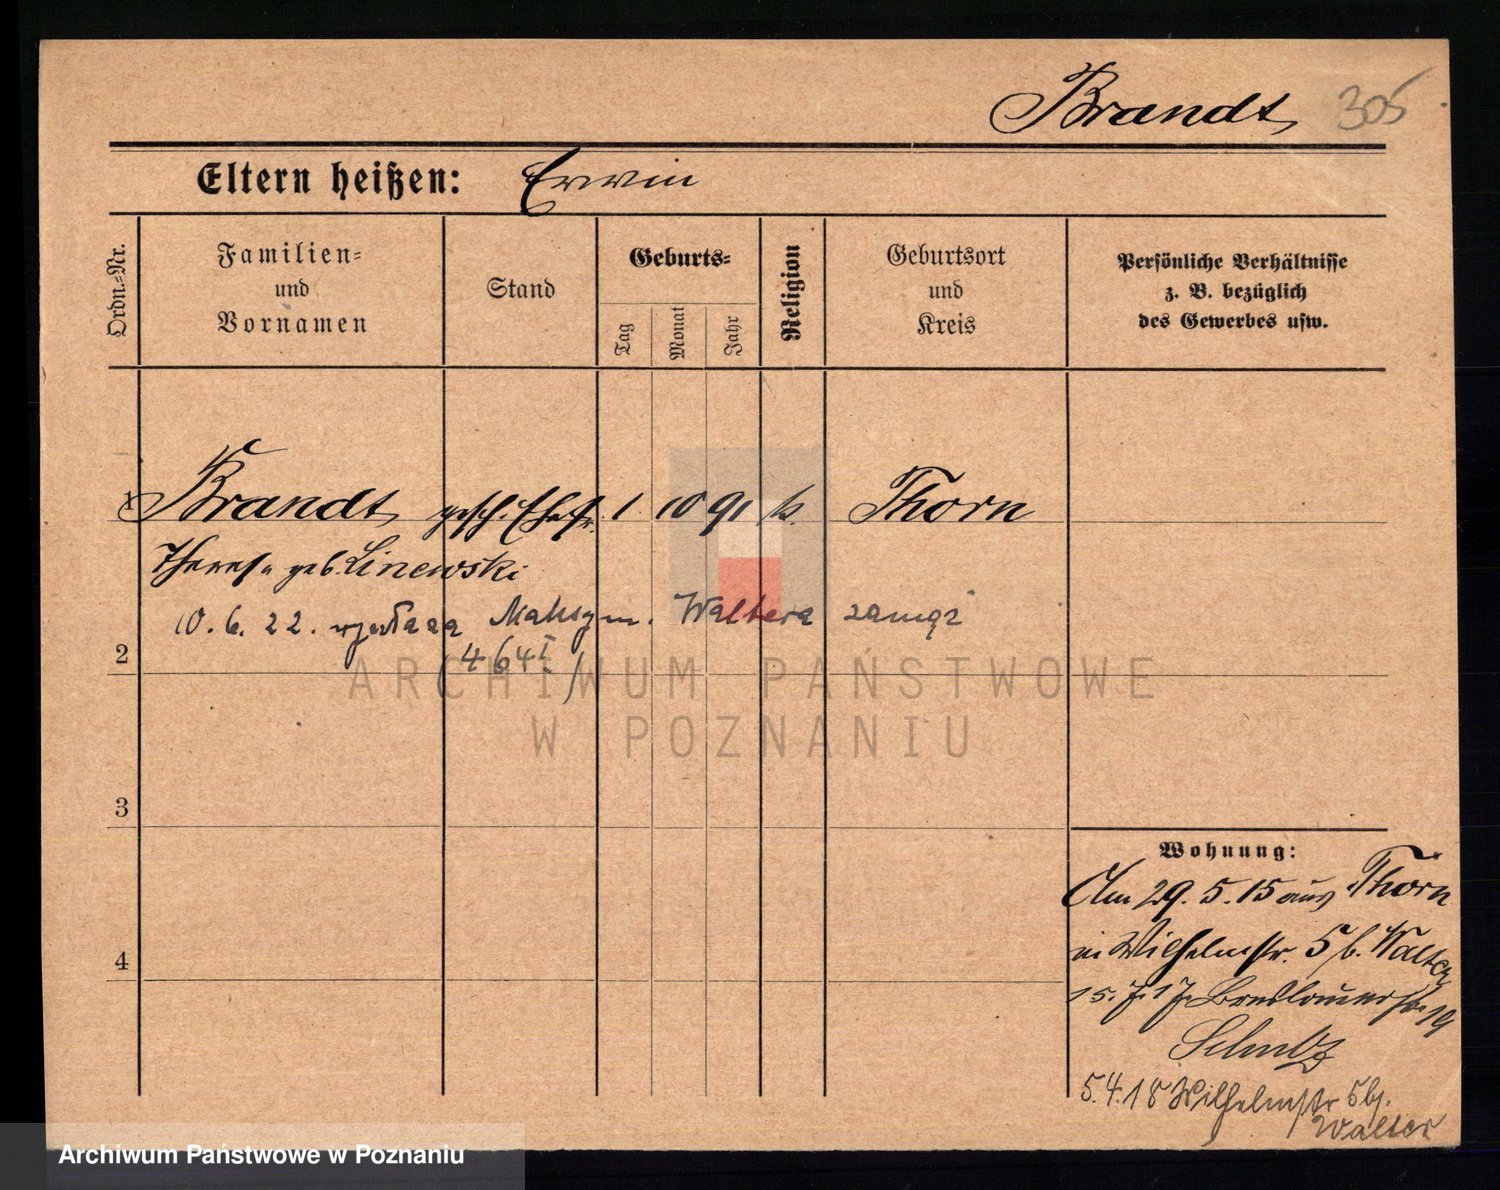 Brandt 305
Eltern heißen: Erwin
Ordn.-Nr.
Familien-
und
Vornamen
Stand
Geburts-
Tag
Monat
Jahr
Religion
Geburtsort
und
Kreis
Persönliche Verhältnisse
z. B. bezüglich
des Gewerbes usw.
1 Brandt gesch. Ehefr. 1 10 91 k. Thorn
Theresa geb. Linewski
10. 6. 22. wydana Maksym. Waltera zamąż
2
464 I
3
4
Wohnung:
Am 29. 5. 15 aus Thorn
in Wilhelmstr. 5 b. Walter
15. 7. 17 Breslauerstr 19
5. 4. 18 Wilhelmstr 5 bj.
Walter
ARCHIWUM PAŃSTWOWE
W POZNANIU
Archiwum Państwowe w Poznaniu